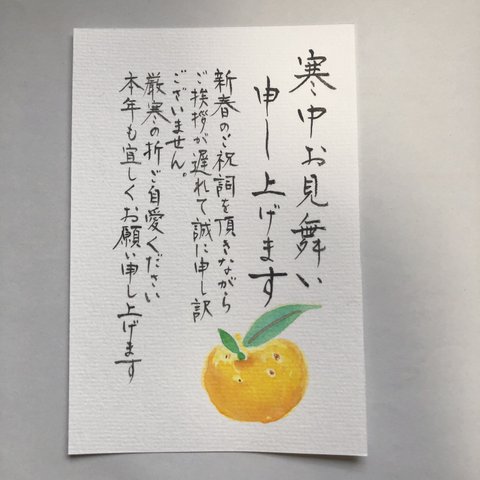 寒中お見舞い
申し上げます
新春のご祝詞を頂きながら
ご挨拶が遅れて誠に申し訳
ございません。
厳寒の折ご自愛ください
本年も宜しくお願い申し上げます